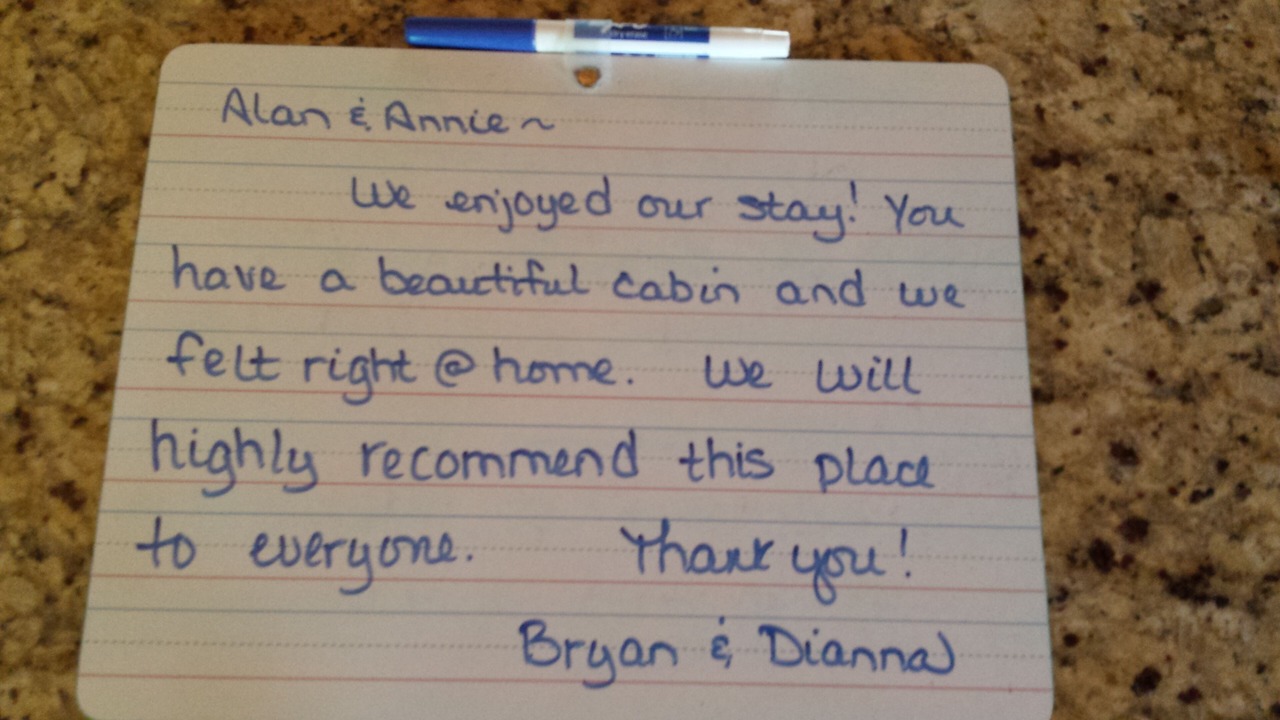 Alan & Annie ~
We enjoyed our stay! You
have a beautiful cabin and we
felt right @ home. We will
highly recommend this place
to everyone. Thank you!
Bryan & Dianna